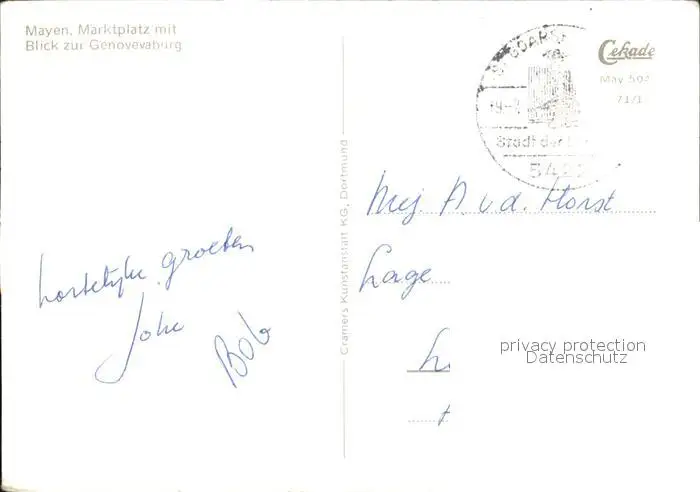 Mayen, Marktplatz mit
Blick zur Genovevaburg
Cekade
May 502
71/1
Stadt der
5422
Cramers Kunstanstalt KG, Dortmund
Mej. A. v. d. Horst
Lage
hartelijke groeten
Joke
Bob
privacy protection
Datenschutz